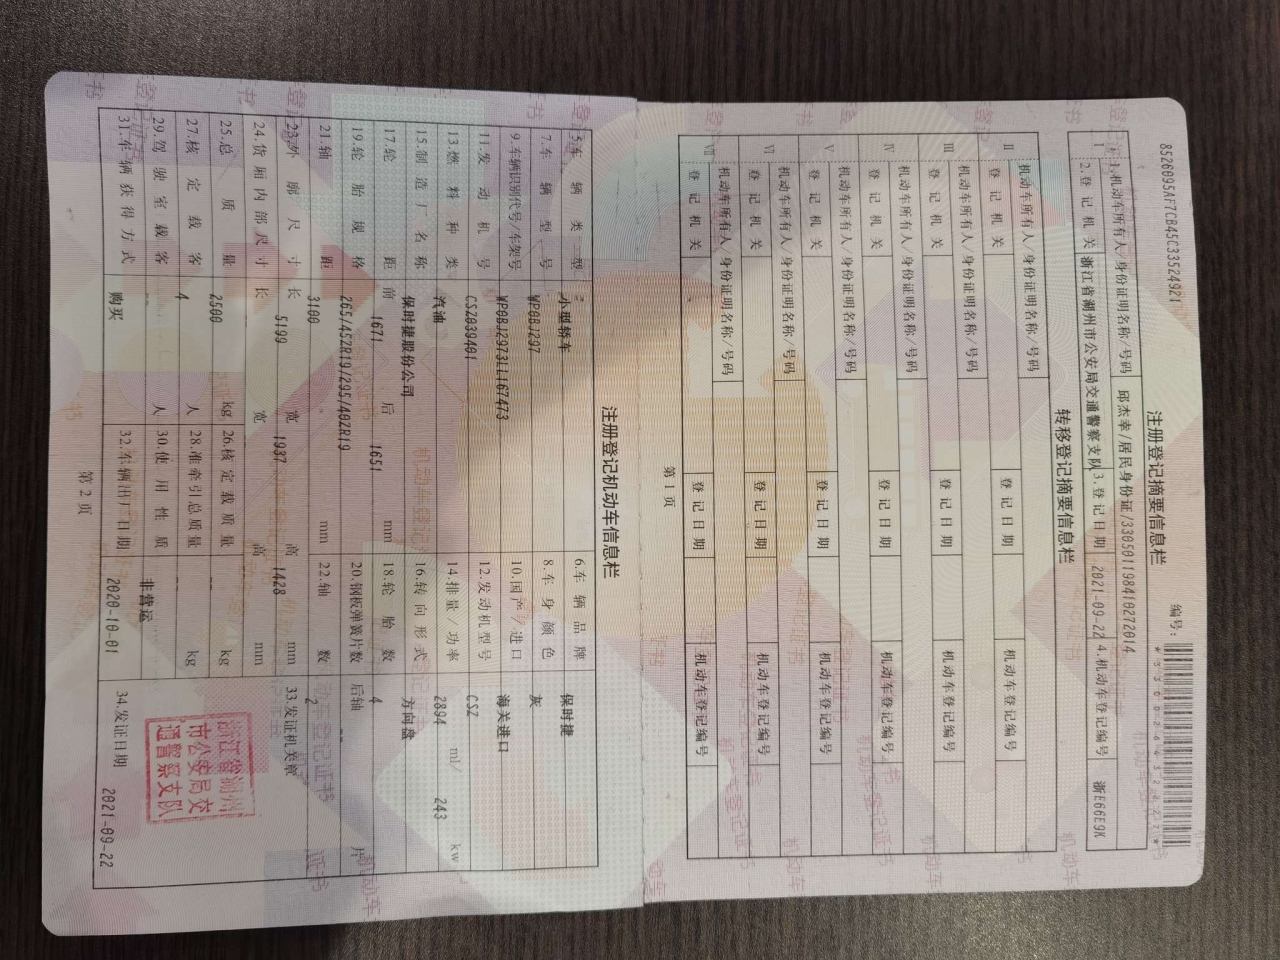 8526095AF7CB45C33524921
编号:
*330026432422*
注册登记摘要信息栏
Ⅰ
1.机动车所有人/身份证明名称/号码 邱杰幸/居民身份证/330501198410272014
2.登记机关 浙江省湖州市公安局交通警察支队 3.登记日期 2021-09-22 4.机动车登记编号 浙E66E9K
转移登记摘要信息栏
Ⅱ
机动车所有人/身份证明名称/号码
登记机关 登记日期 机动车登记编号
Ⅲ
机动车所有人/身份证明名称/号码
登记机关 登记日期 机动车登记编号
Ⅳ
机动车所有人/身份证明名称/号码
登记机关 登记日期 机动车登记编号
Ⅴ
机动车所有人/身份证明名称/号码
登记机关 登记日期 机动车登记编号
Ⅵ
机动车所有人/身份证明名称/号码
登记机关 登记日期 机动车登记编号
Ⅶ
机动车所有人/身份证明名称/号码
登记机关 登记日期 机动车登记编号
第1页
注册登记机动车信息栏
5.车辆类型 小型轿车 6.车辆品牌 保时捷
7.车辆型号 WP0BJ297 8.车身颜色 灰
9.车辆识别代号/车架号 WP0BJ2973LL167473 10.国产/进口 海关进口
11.发动机号 CSZ039401 12.发动机型号 CSZ
13.燃料种类 汽油 14.排量/功率 2894 ml/ 243 kw
15.制造厂名称 保时捷股份公司 16.转向形式 方向盘
17.轮距 前 1671 后 1651 mm 18.轮胎数 4
19.轮胎规格 265/45ZR19/295/40ZR19 20.钢板弹簧片数 后轴 -- 片
21.轴距 3100 mm 22.轴数 2
23.外廓尺寸 长 5199 宽 1937 高 1428 mm 33.发证机关章
24.货厢内部尺寸 长 宽 高 mm
25.总质量 2500 kg 26.核定载质量 -- kg
27.核定载客 4 人 28.准牵引总质量 -- kg
29.驾驶室载客 -- 人 30.使用性质 非营运
31.车辆获得方式 购买 32.车辆出厂日期 2020-10-01 34.发证日期 2021-09-22
浙江省湖州
市公安局交
通警察支队
第2页